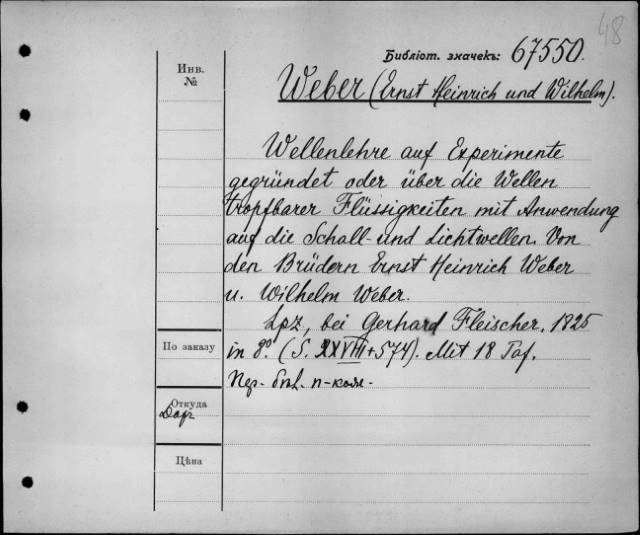 48
Библіот. значекъ: 67550.
Инв.
№
Weber (Ernst Heinrich und Wilhelm).
Wellenlehre auf Experimente
gegründet oder über die Wellen
tropfbarer Flüssigkeiten mit Anwendung
auf die Schall- und Lichtwellen. Von
den Brüdern Ernst Heinrich Weber
u. Wilhelm Weber.
Lpz, bei Gerhard Fleischer, 1825
По заказу
in 8º. (S. XXVIII + 574). Mit 18 Taf.
Пер. п-кож.
Откуда
Дар
Цѣна